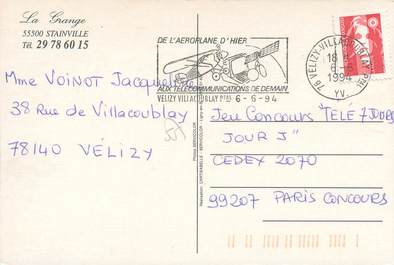 La Grange
55500 STAINVILLE
Tél. 29 78 60 15
Mme VOINOT Jacqueline
38 Rue de Villacoublay
78140 VÉLIZY
DE L'AEROPLANE D'HIER
AUX TELECOMMUNICATIONS DE DEMAIN
VELIZY VILLACOUBLAY PPAL 6-6-94
78 VELIZY-VILLACOUBLAY PPAL
18 H
6-6
1994
YV.
Jeu Concours "TELÉ 7 JOURS
JOUR J"
CEDEX 2070
99207 PARIS CONCOURS